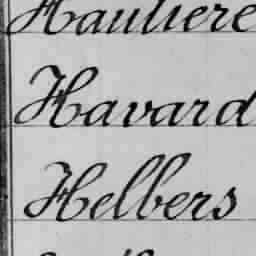 Hauliere
Havard
Helbers